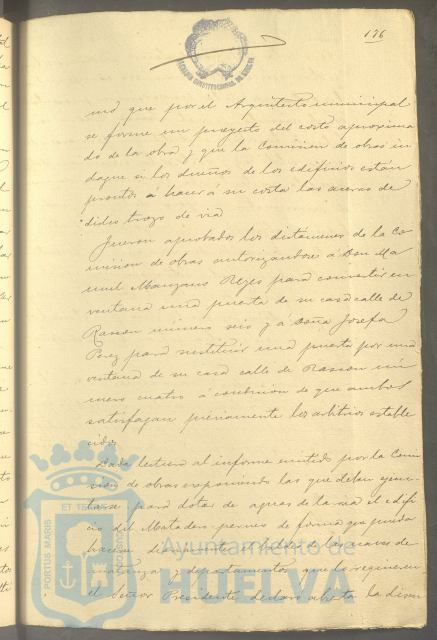 176
nó que por el Arquitecto municipal
se forme un proyecto del costo aproxima
do de la obra y que la Comision de obras in
dague si los dueños de los edificios están
prontos á hacer á su costa las aceras de
dicho trozo de via
Fueron aprobados los dictamenes de la Co
mision de obras autorizándose á Don Ma
nuel Manzano Reyes para convertir en
ventana una puerta de su casa calle de
Rascon número seis y á Doña Josefa
Perez para sustituir una puerta por una
ventana de su casa calle de Rascon nú
mero cuatro á condicion de que ambos
satisfagan préviamente los arbitrios estable
cidos
Dada lectura al informe emitido por la Comi
sion de obras exponiendo las que deben ejecu
tarse para dotar de aguas de la ria el edifi
cio del Matadero de forma que pueda
hacerse diariamente el baldeo de las naves de
matanza y departamentos que lo requieren
el Señor Presidente declaró abierta la discu
ET TERRÆ
PORTUS MARIS
CUSTODIA
Ayuntamiento de
HUELVA